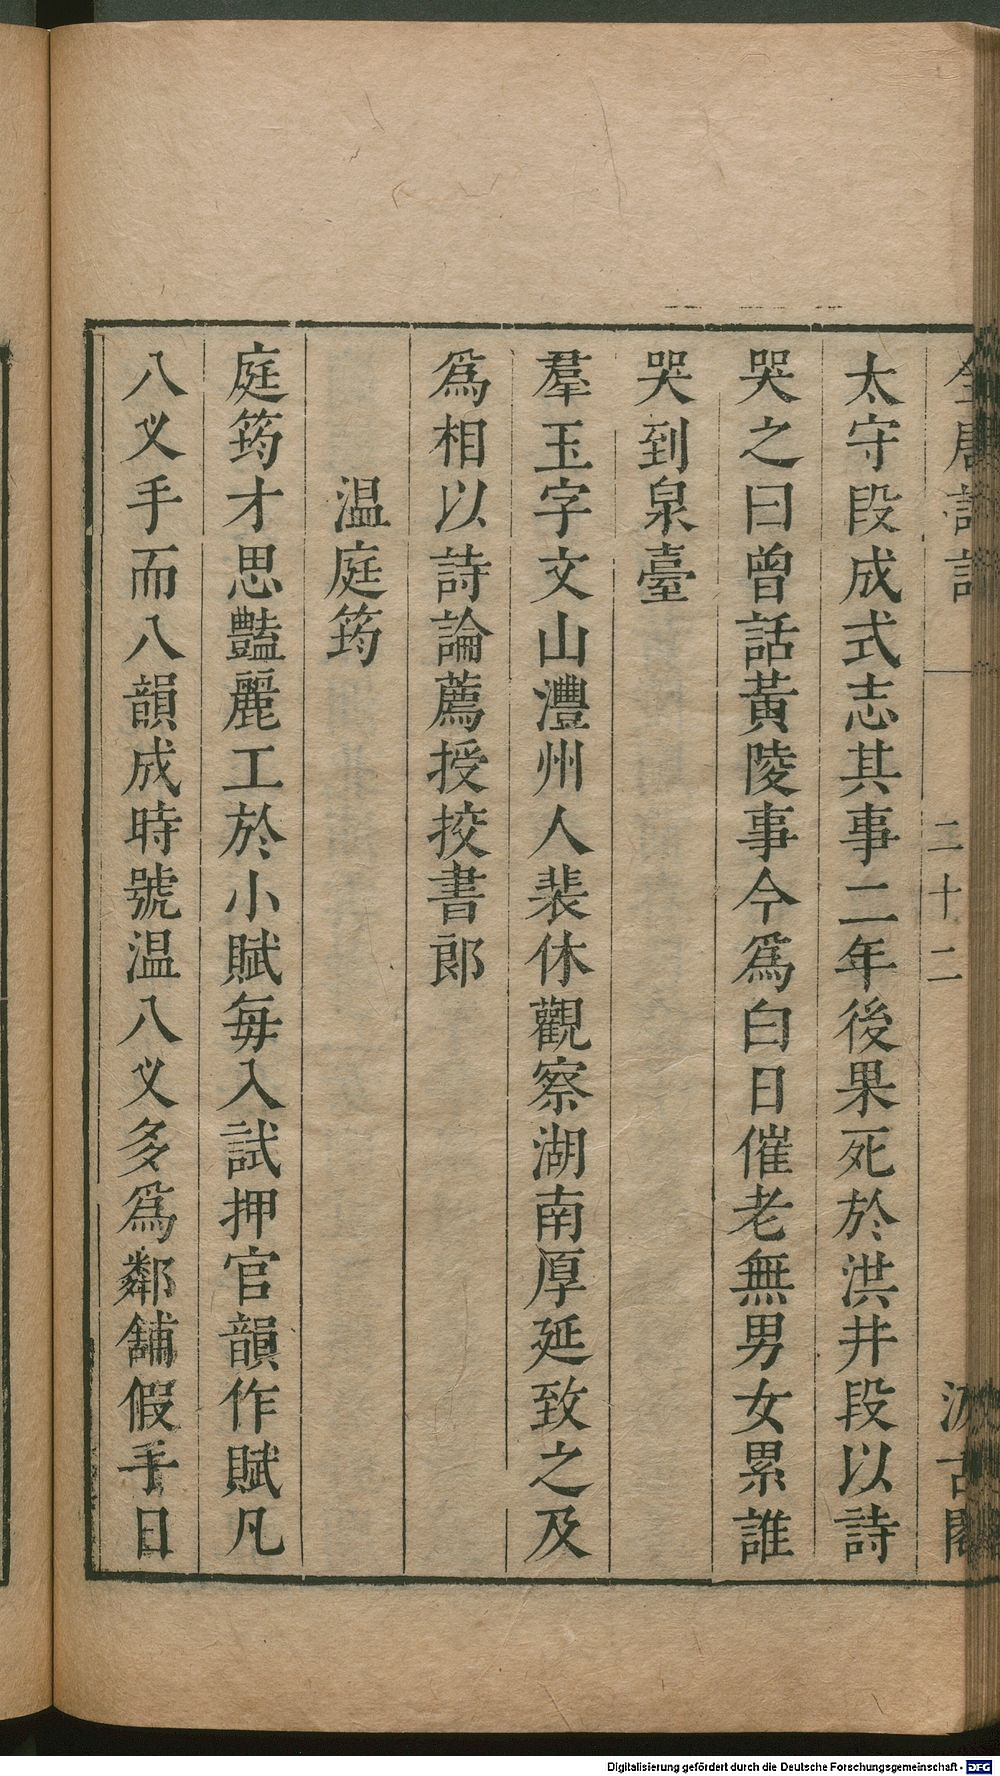 全唐詩話
二十二
汲古閣
太守段成式志其事二年後果死於洪井段以詩
哭之曰曾話黃陵事今爲白日催老無男女累誰
哭到泉臺
羣玉字文山灃州人裴休觀察湖南厚延致之及
爲相以詩論薦授挍書郎
温庭筠
庭筠才思豔麗工於小賦每入試押官韻作賦凡
八义手而八韻成時號温八义多爲鄰舖假手日
Digitalisierung gefördert durch die Deutsche Forschungsgemeinschaft - DFG